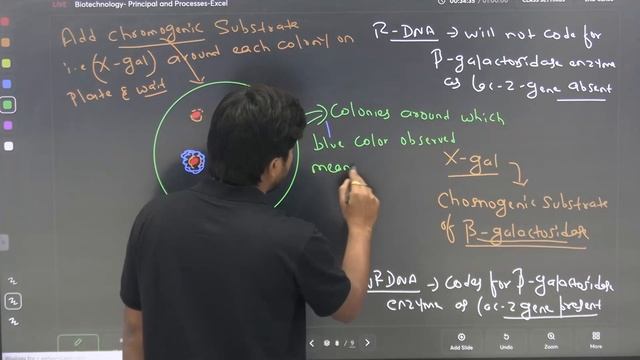 LIVE Biotechnology- Principal and Processes-Excel
00:34:35 01:00:00 CLASS SETTINGS End Menu
Add chromogenic Substrate
i.e (X-gal) around each colony on
Plate & wait
R-DNA → will not code for
β-galactosidase enzyme
as Lac-Z-gene absent
Colonies around which
blue color observed
mean
X-gal
Chromogenic Substrate
of β-galactosidase
RDNA → Codes for β-galactosidase
enzyme as Lac-Z gene present
8 / 9
Add Slide Undo Zoom More